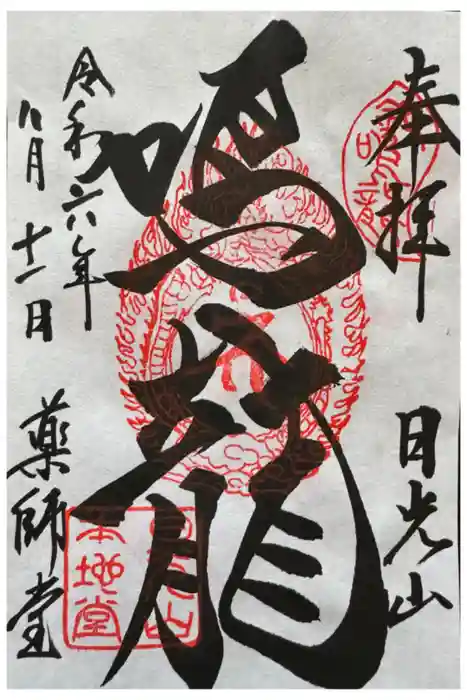 奉拝
日光山
鳴龍
令和六年
八月十一日
薬師堂
日光山
本地堂